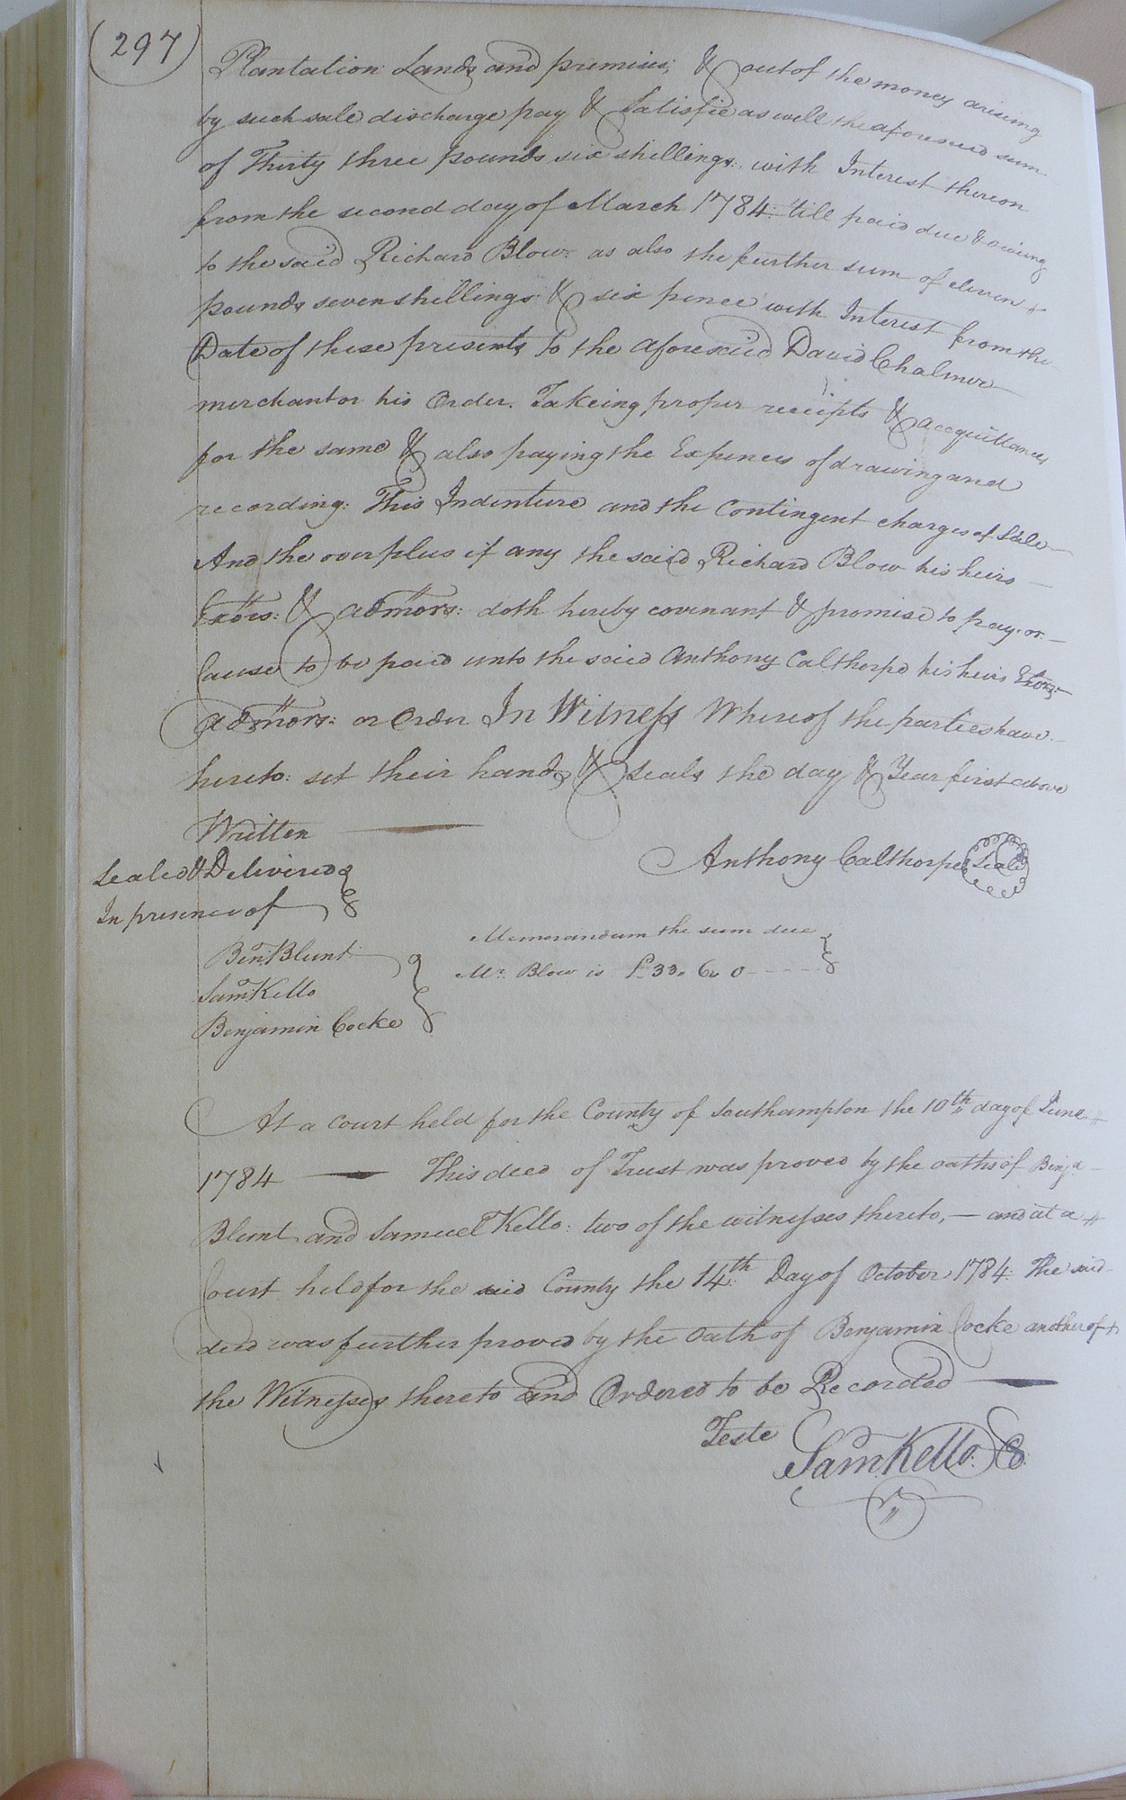 (297)
Plantation Lands and premises; & out of the money arising
by such sale discharge pay & Satisfie as well the aforesaid sum
of Thirty three pounds six shillings: with Interest thereon
from the second day of March 1784: till paid due & owing
to the said Richard Blow: as also the further sum of eleven
pounds seven shillings & six pence with Interest from the
Date of these presents to the aforesaid David Chalmers
merchant or his Order. Takeing proper receipts & accquittances
for the same & also paying the Expences of drawing and
recording: This Indenture and the Contingent charges of Sale
And the overplus if any the said Richard Blow his heirs
Exōrs: & admōrs: doth hereby covenant & promise to pay or
Cause to be paid unto the said Anthony Calthorpe his heirs Exōrs:
admōrs: or Order In Witness Whereof the parties have
hereto: set their hands & Seals the day & Year first above
Written
Sealed & Delivered
In presence of
Anthony Calthorpe Seal
Memorandum the sum due
Mr. Blow is £33. 6. 0
Ben. Blunt
Sam. Kello
Benjamin Cocke
At a Court held for the County of Southampton the 10th day of June
1784 — This deed of Trust was proved by the oaths of Benja.
Blunt and Samuel Kello: two of the witnesses thereto, — and at a
Court held for the said County the 14th: Day of October 1784: The said
deed was further proved by the Oath of Benjamin Cocke another of
the Witnesses thereto and Ordered to be Recorded —
Teste
Sam. Kello. C